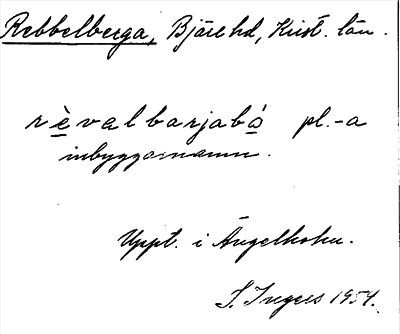 Rebbelberga, Bjäre hd, Krist. län.
rèvalbarjabó pl. -a
inbyggarnamn.
Uppt. i Ängelholm.
I. Ingers 1954.